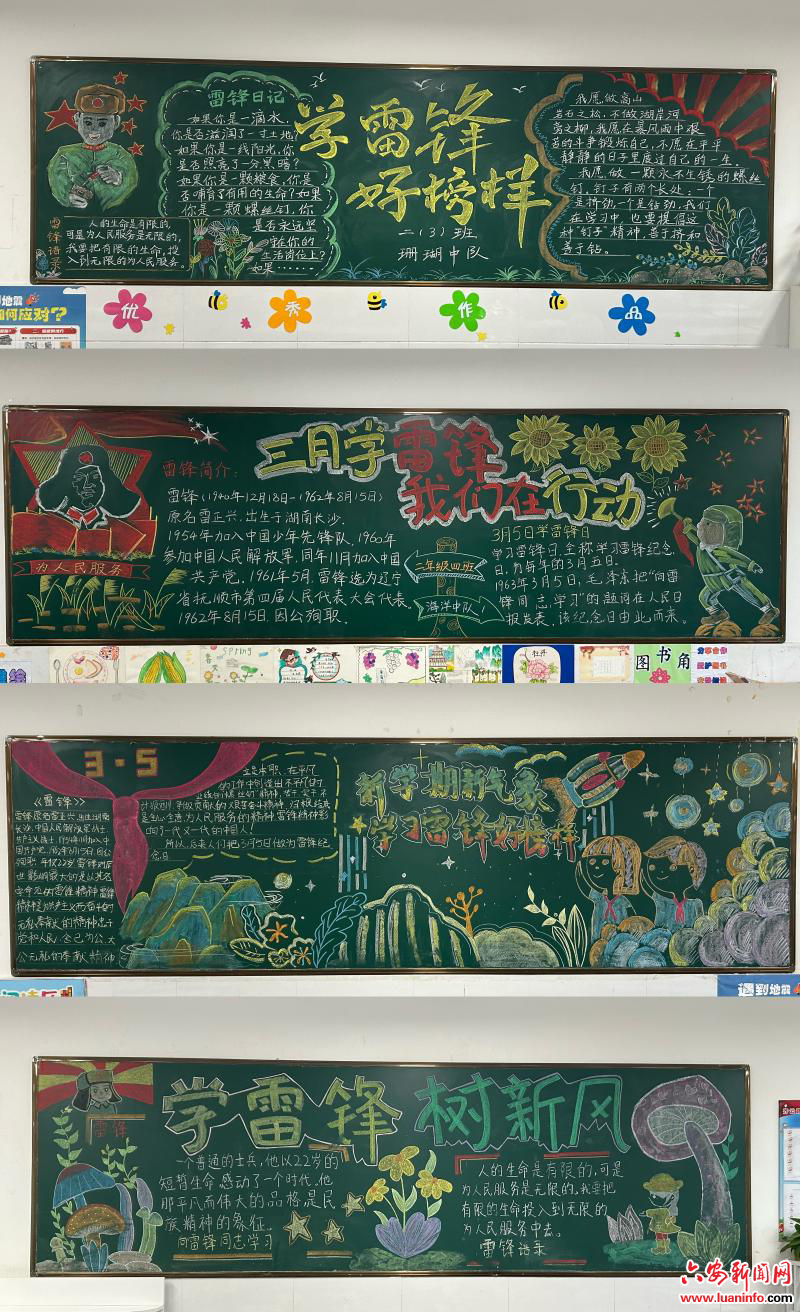 雷锋日记
如果你是一滴水,
你是否滋润了一寸土地
如果你是一线阳光,你
是否照亮了一分黑暗?
如果你是一颗粮食,你是
否哺育了有用的生命?如果
你是一颗螺丝钉,你
是否永远坚
守在你的
生活岗位上?
如果……
雷锋语录
人的生命是有限的,
可是为人民服务是无限的,
我要把有限的生命,投
入到无限的为人民服务。
学雷锋
好榜样
二(3)班
珊瑚中队
我愿做高山
岩石之松,不做湖岸河
旁之柳,我愿在暴风雨中
的斗争锻炼自己,不愿在平平
静静的日子里度过自己的一生.
我愿做一颗永不生锈的螺丝
钉,钉子有两个长处:一个
是挤劲,一个是钻劲,我们
在学习中,也要提倡这
种"钉子"精神,善于挤和
善于钻。
优
秀
作
品
地震
如何应对?
三月学雷锋
我们在行动
雷锋简介:
雷锋(1940年12月18日-1962年8月15日)
原名雷正兴,出生于湖南长沙.
1954年加入中国少年先锋队,1960年
参加中国人民解放军,同年11月加入中国
共产党,1961年5月,雷锋选为辽宁
省抚顺市第四届人民代表大会代表,
1962年8月15日,因公殉职.
为人民服务
二年级四班
海洋中队
3月5日学雷锋日
学习雷锋日,全称学习雷锋纪念
日,为每年的3月五日.
1963年3月5日,毛泽东把"向雷
锋同志学习"的题词在人民日
报发表,该纪念日由此而来。
spring
牡丹
图书角
3·5
《雷锋》
雷锋原名雷正兴,出生湖南
长沙,中国人民解放军战士,
共产主义战士,
立足本职、在平凡
的工作中创造出不平凡的
为人民服务的精神,雷锋精神影
响了一代又一代的中国人!
所以,后来人们把3月5日做为雷锋纪
念日
党和人民,舍己为公,大
公无私的奉献精神
新学期新气象
学习雷锋好榜样
遇到地震
学雷锋 树新风
雷锋
一个普通的士兵,他以22岁的
短暂生命感动了一个时代.他
那平凡而伟大的品格,是民
族精神的象征。
向雷锋同志学习
人的生命是有限的,可是
为人民服务是无限的,我要把
有限的生命投入到无限的
为人民服务中去。
雷锋语录
六安新闻网
www.luaninfo.com